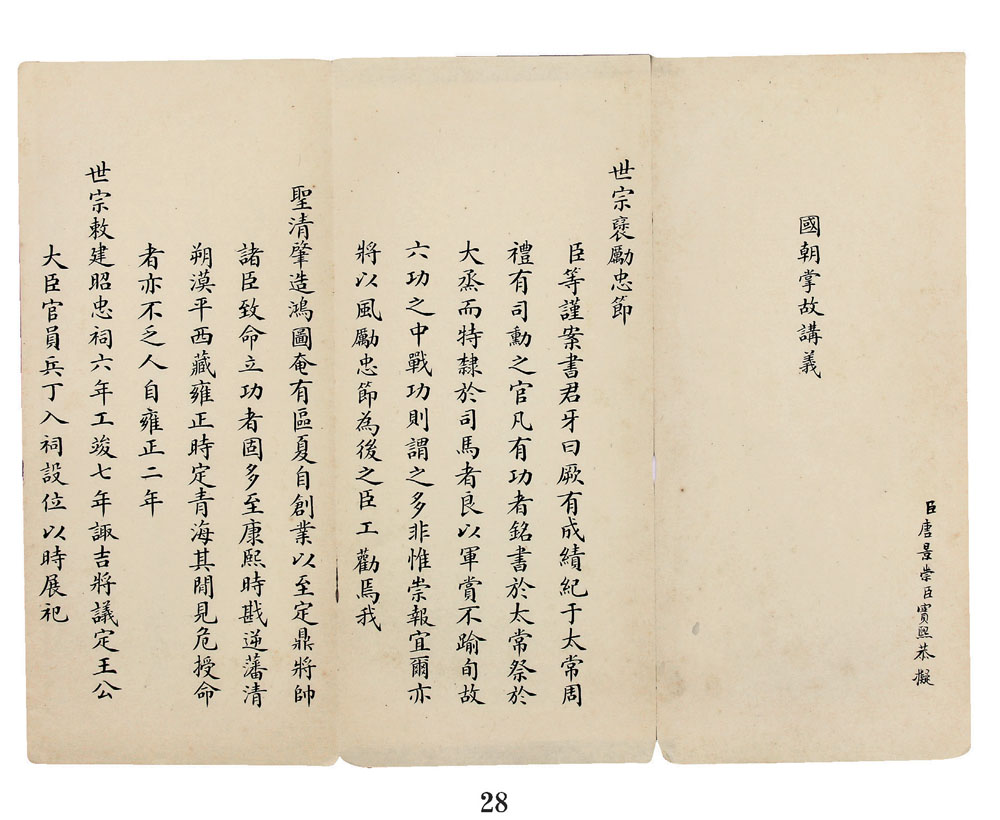 國朝掌故講義
臣唐景崇臣寶熙恭擬
世宗褒勵忠節
臣等謹案書君牙曰厥有成績紀于太常周
禮有司勳之官凡有功者銘書於太常祭於
大烝而特隸於司馬者良以軍賞不踰旬故
六功之中戰功則謂之多非惟崇報宜爾亦
將以風勵忠節為後之臣工勸焉我
聖清肇造鴻圖奄有區夏自創業以至定鼎將帥
諸臣致命立功者固多至康熙時戡逆藩清
朔漠平西藏雍正時定青海其間見危授命
者亦不乏人自雍正二年
世宗敕建昭忠祠六年工竣七年諏吉將議定王公
大臣官員兵丁入祠設位以時展祀
28